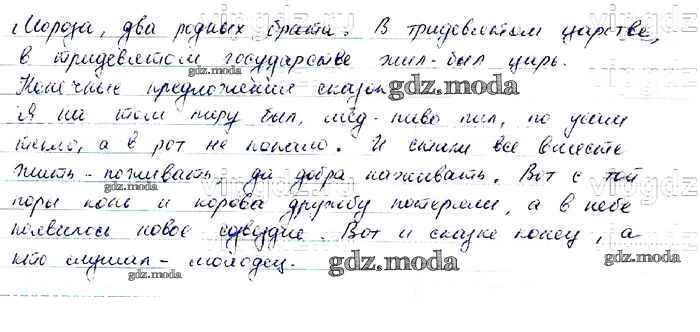 Мороза, два родных брата. В тридевятом царстве,
в тридевятом государстве жил-был царь.
Конечные предложения сказок
Я на том пиру был, мёд-пиво пил, по усам
текло, а в рот не попало. И стали все вместе
жить-поживать, да добра наживать. Вот с той
поры конь и корова дружбу потеряли, а в небе
появилось новое созвездие. Вот и сказке конец, а
кто слушал - молодец.
gdz.moda
gdz.moda
gdz.moda
gdz.moda
gdz.moda
gdz.moda